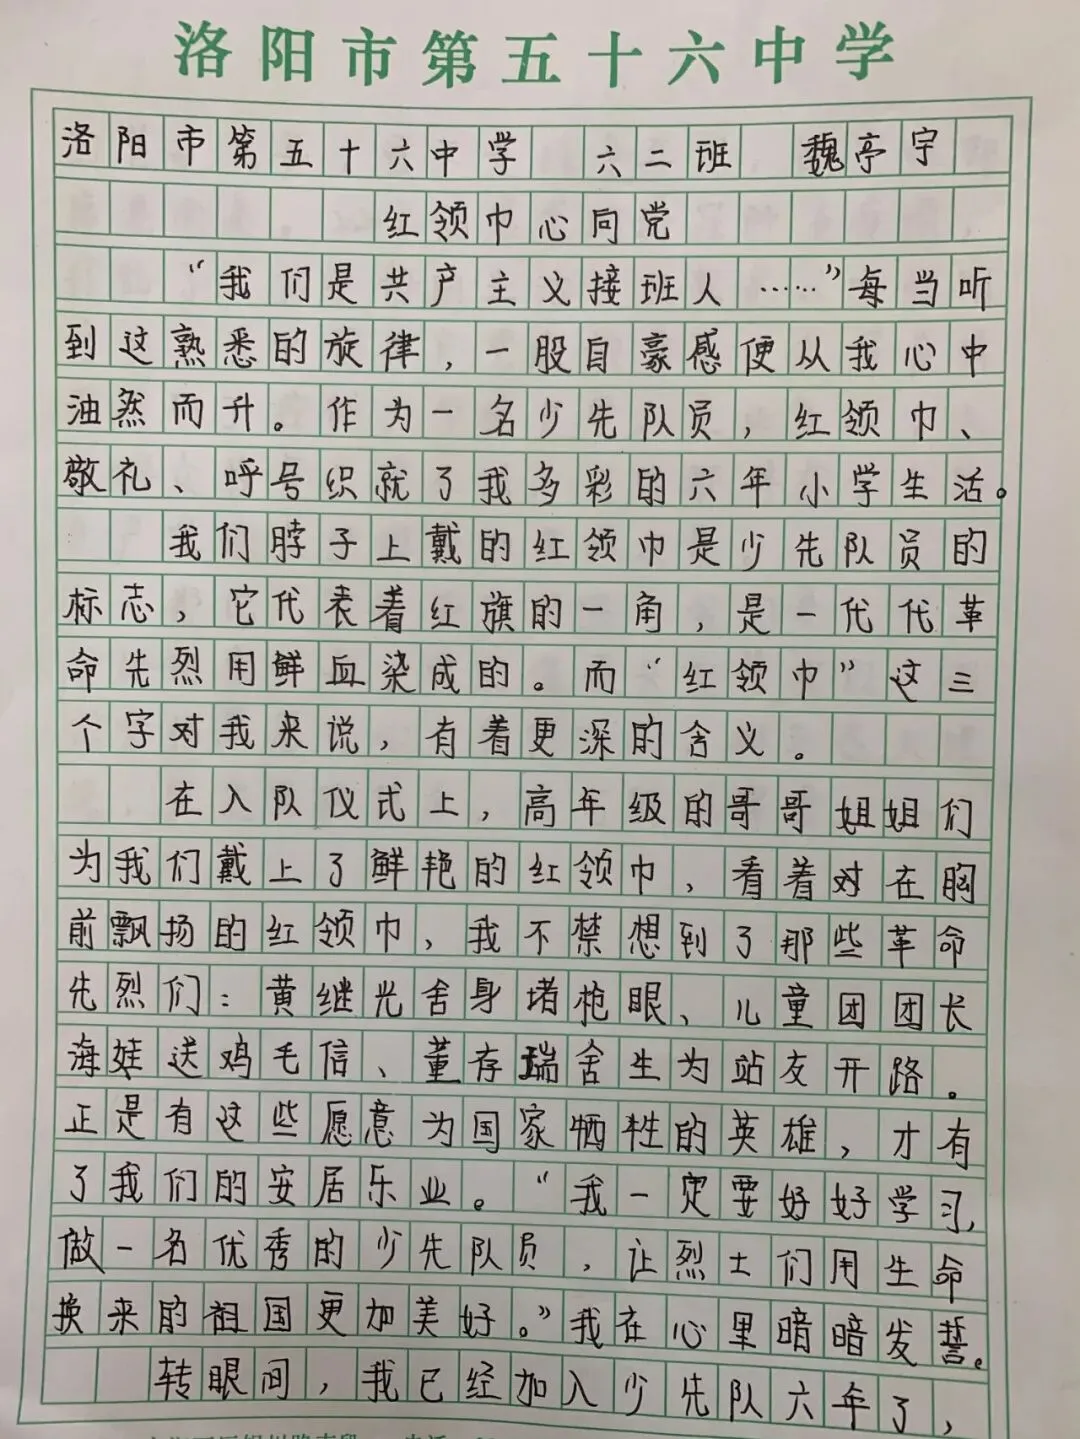 洛阳市第五十六中学
洛阳市第五十六中学 六二班 魏亭宇
红领巾心向党
“我们是共产主义接班人……”每当听
到这熟悉的旋律，一股自豪感便从我心中
油然而升。作为一名少先队员，红领巾、
敬礼、呼号织就了我多彩的六年小学生活。
我们脖子上戴的红领巾是少先队员的
标志，它代表着红旗的一角，是一代代革
命先烈用鲜血染成的。而“红领巾”这三
个字对我来说，有着更深的含义。
在入队仪式上，高年级的哥哥姐姐们
为我们戴上了鲜艳的红领巾，看着对在胸
前飘扬的红领巾，我不禁想到了那些革命
先烈们：黄继光舍身堵枪眼、儿童团团长
海娃送鸡毛信、董存瑞舍生为站友开路。
正是有这些愿意为国家牺牲的英雄，才有
了我们的安居乐业。“我一定要好好学习，
做一名优秀的少先队员，让烈士们用生命
换来的祖国更加美好。”我在心里暗暗发誓。
转眼间，我已经加入少先队六年了，